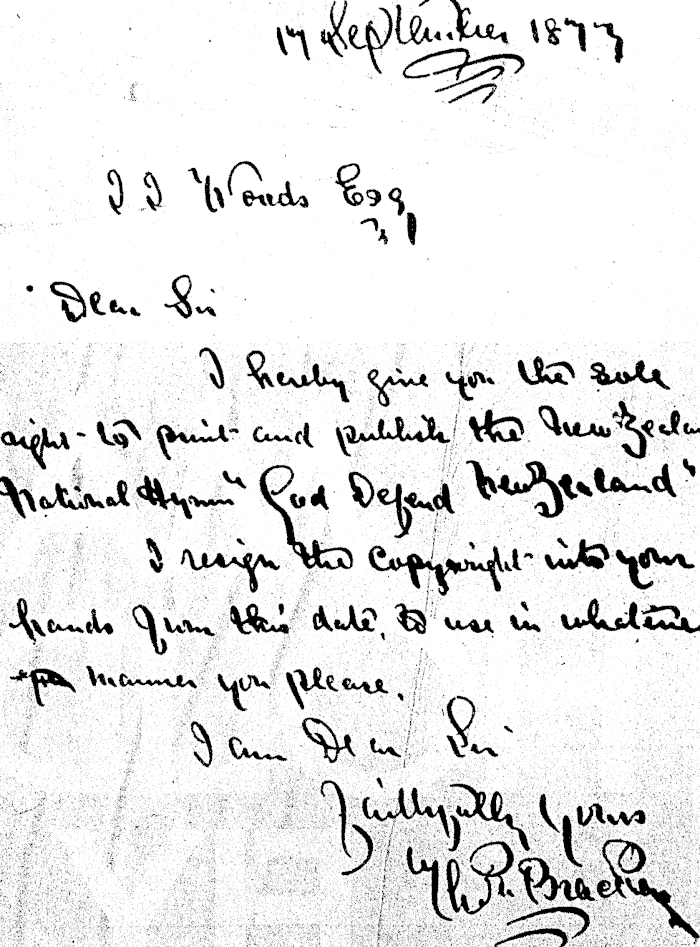 17 September 1877
J J Woods Esq
Dear Sir
I hereby give you the sole
right to print and publish the New Zealan
National Hymn "God Defend New Zealand"
I resign the copywright into your
hands from this date, to use in whateve
manner you please.
I am Dear Sir
Faithfully Yours
Bracken